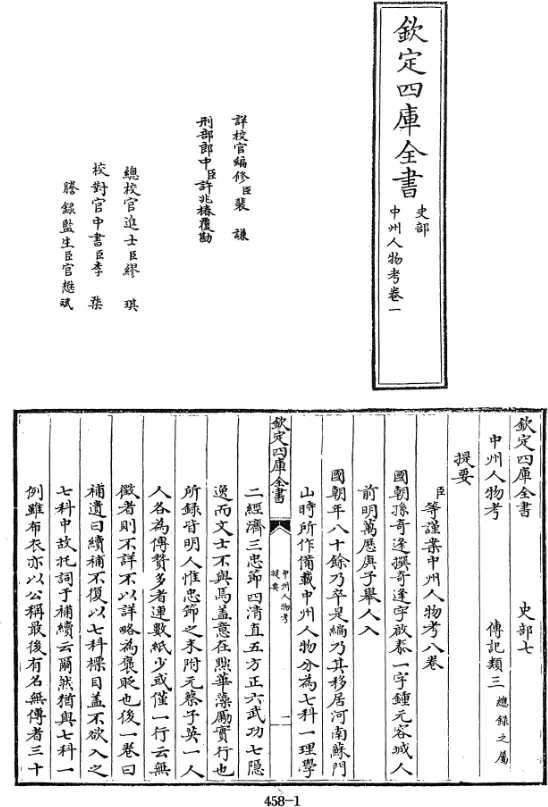 欽定四庫全書
史部
中州人物考卷一
詳校官編修臣裴謙
刑部郎中臣許兆椿覆勘
總校官進士臣繆琪
校對官中書臣李
謄錄監生臣官懋斌
欽定四庫全書
史部七
中州人物考
傳記類三
總錄之屬
提要
臣等謹案中州人物考八卷
國朝孫奇逢撰奇逢字啟泰一字鍾元容城人
前明萬歷庚子舉人入
國朝年八十餘乃卒是編乃其移居河南蘇門
山時所作備載中州人物分為七科一理學
欽定四庫全書
中州人物考
提要
一
二經濟三忠節四清直五方正六武功七隱
逸而文士不與焉蓋意在黜華藻勵實行也
所録皆明人惟忠節之末附元蔡子英一人
人各為傳贊多者連數紙少或僅一行云無
徵者則不詳不以詳略為褒貶也後一卷曰
補遺曰續補不復以七科標目蓋不欲入之
七科中故托詞于補續云爾然猶與七科一
例雖布衣亦以公稱最後有名無傳者三十
458-1